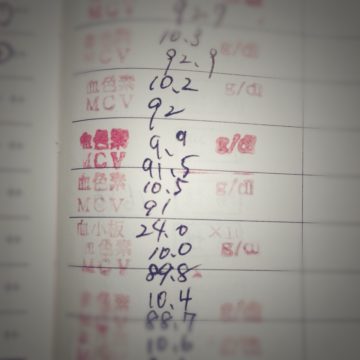 92.9
血色素 10.3 g/dl
MCV 92.9
血色素 10.2 g/dl
MCV 92
血色素 9.9 g/dl
MCV 91.5
血色素 10.5 g/dl
MCV 91
血小板 24.0 ×10
血色素 10.0 g/dl
MCV 89.8
血色素 10.4 g/dl
88.7
10.6